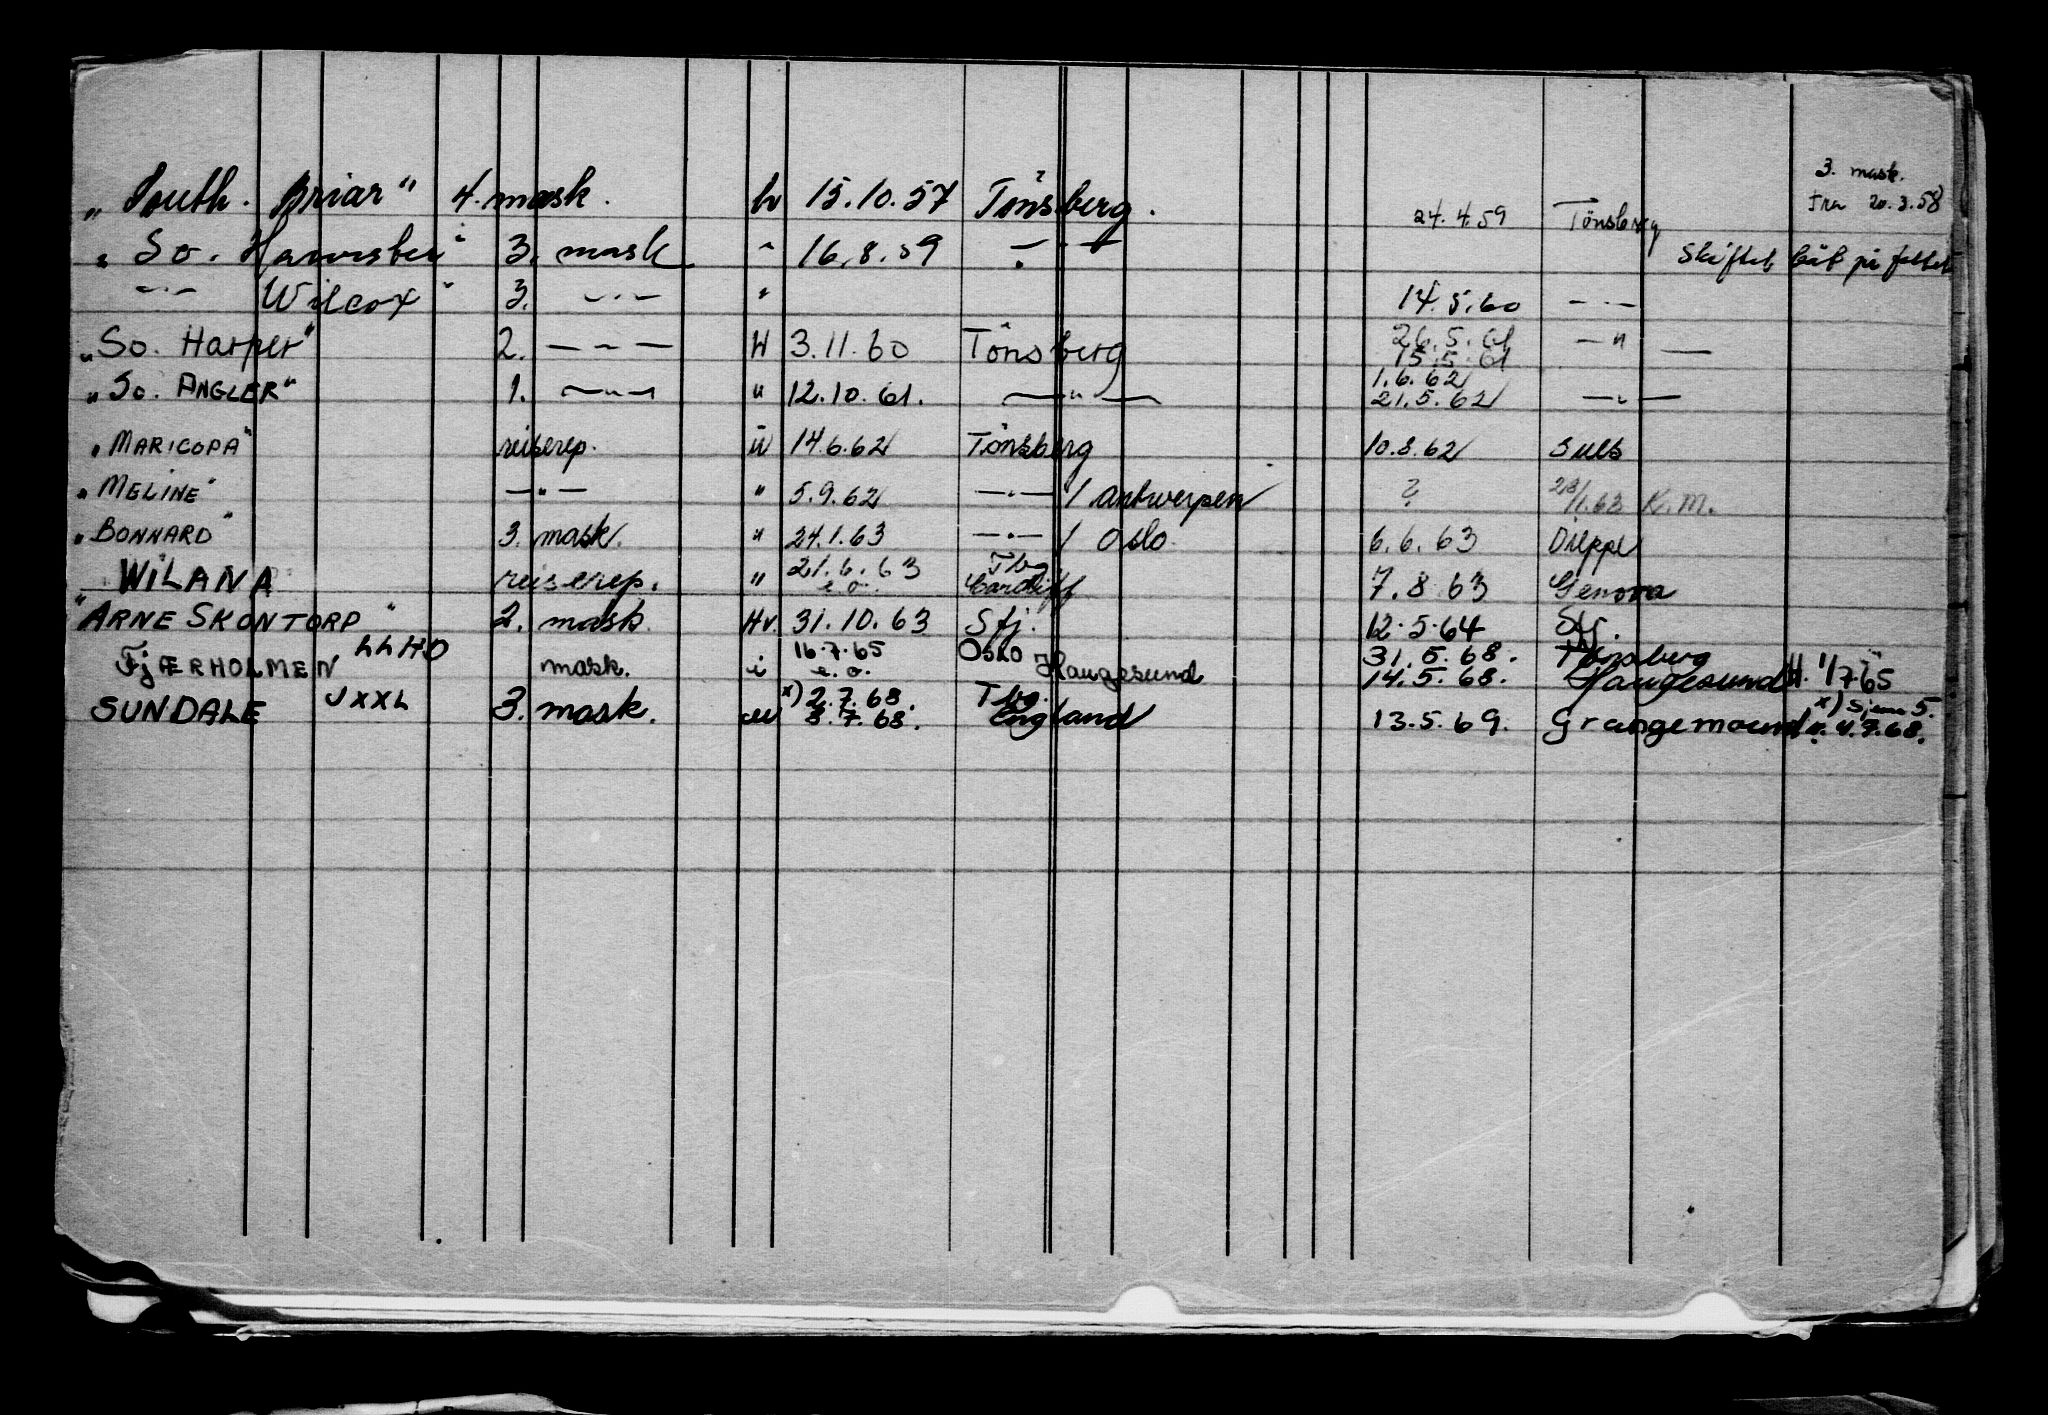 3. mask.
"South. Briar" 4. mask. h 15.10.57 Tönsberg. 24.4.59 Tönsberg fra 20.3.58
" So. Harvester" 3. mask " 16.8.59 — . — Skiftet båt på feltet
— " — Wilcox " 3. — . — " 14.5.60 — . —
"So. Harper" 2. — — — H 3.11.60 Tönsberg 26.5.61 — " —
15.5.61
"So. ANGLER" 1. — " — " 12.10.61. — " — 1.6.62
21.5.62 — " —
"MARICOPA" reiserep. u 14.6.62 Tönsberg 10.8.62
"MELINE" — " — " 5.9.62 — . — / Antwerpen ? 28/1.63 K.M.
"BONNARD" 3. mask. " 24.1.63 — . — / Oslo 6.6.63 Dieppe
"WILANA reiserep. " 21.6.63 Tbg
e.o. Cardiff 7.8.63 Genova
"ARNE SKONTORP" 2. mask. Hv. 31.10.63 Sfj. 12.5.64 Sfj.
FjÆRHOLMEN LLHO mask. i 16.7.65 Oslo 31.5.68. Tönsberg
e.o. Haugesund 14.5.68. Haugesund H. 1/7-65
SUNDALE JXXL 3. mask. x) 2.7.68. Tbg. x) Sjem 5.
3.7.68. England 13.5.69. Grangemound 4.7.68.